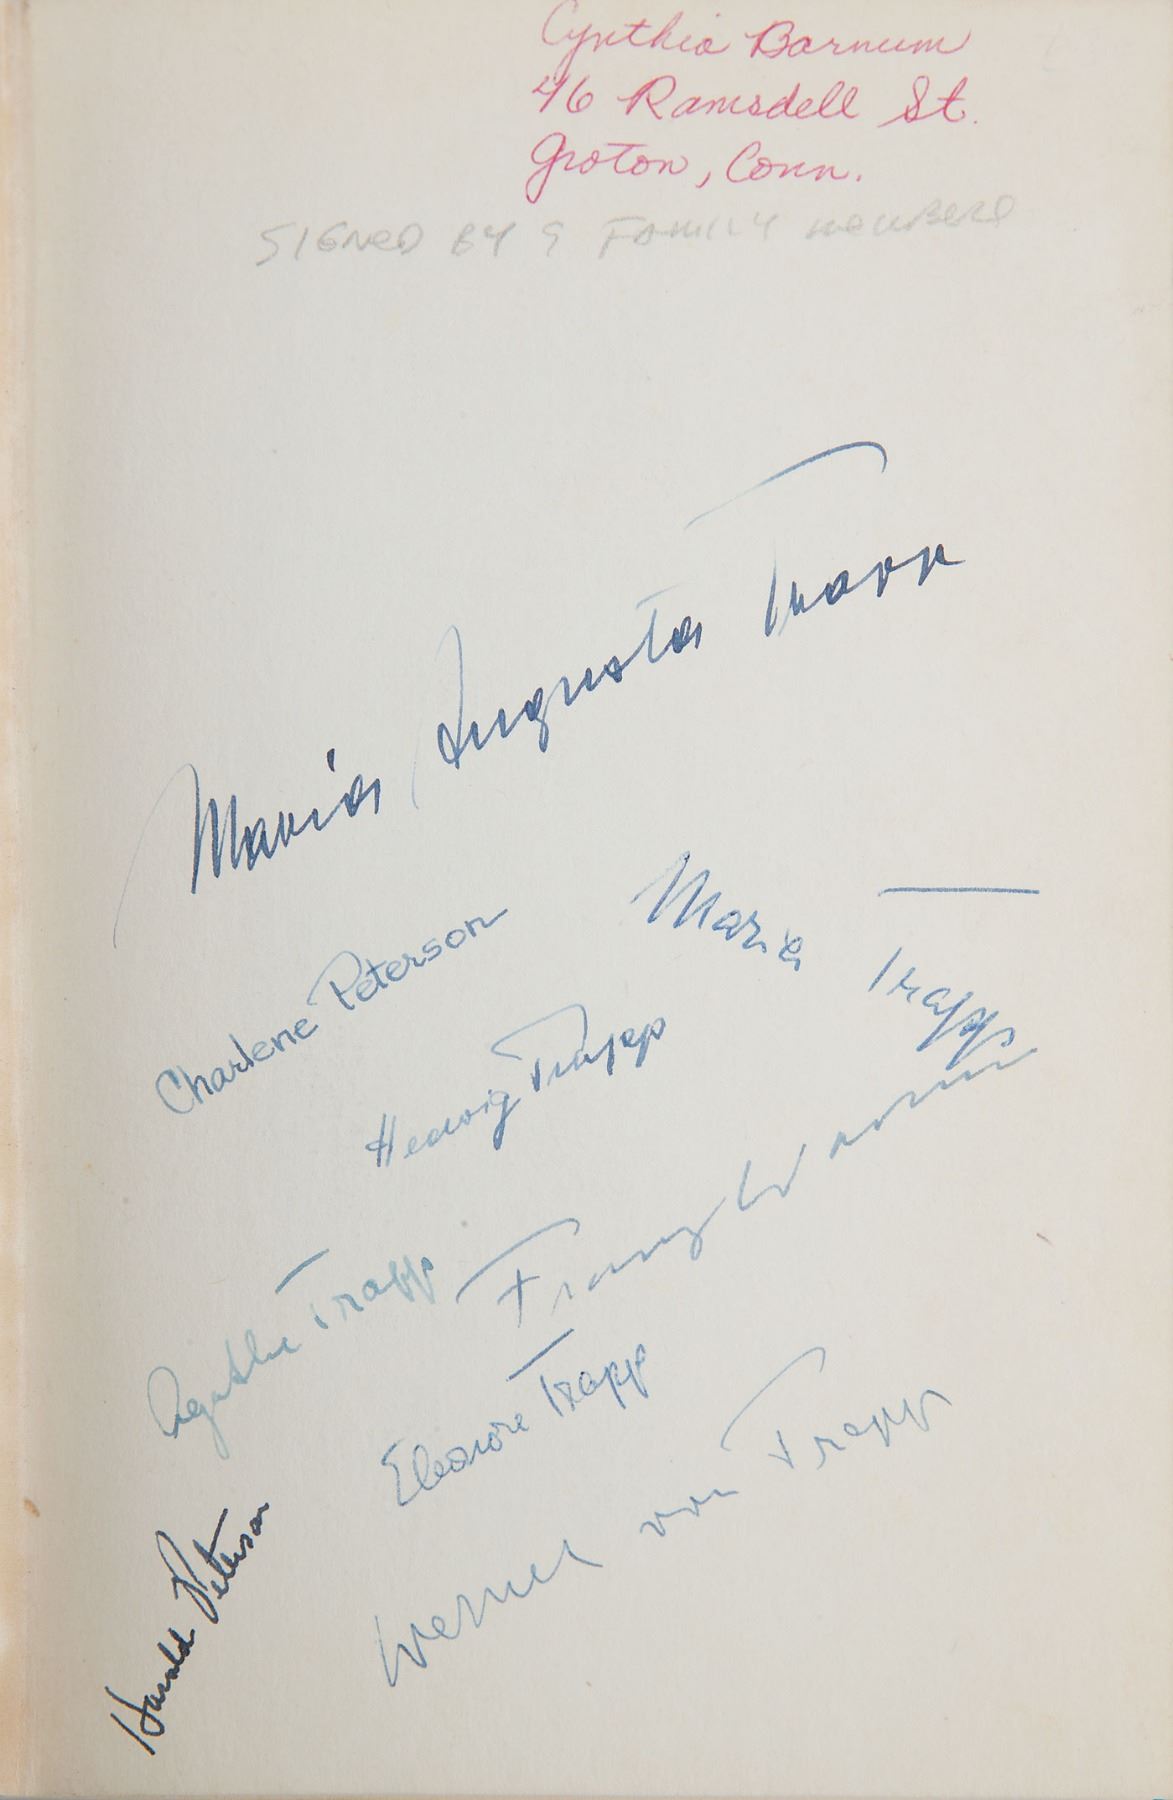 Cynthia Barnum
46 Ramsdell St.
Groton, Conn.
SIGNED BY 9 FAMILY MEMBERS
Maria Augusta Trapp
Maria Trapp
Charlene Peterson
Hedwig Trapp
Franz Wasner
Agathe Trapp
Eleonore Trapp
Werner von Trapp
Harold Peterson